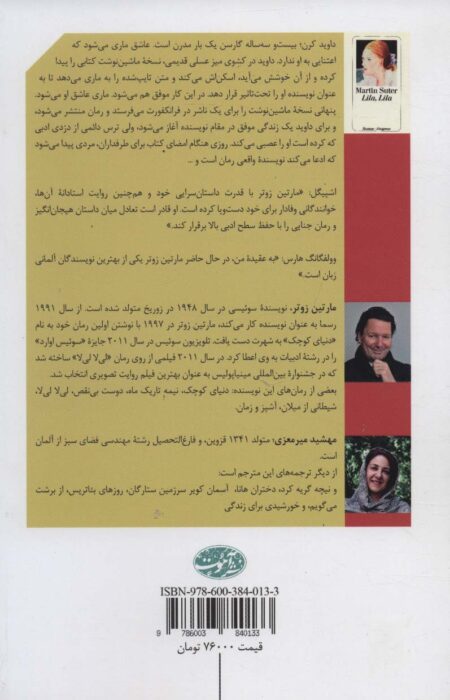 داوید کرن؛ بیست‌و سه‌ساله گارسن یک بار مدرن است. عاشق ماری می‌شود که
اعتنایی به او ندارد. داوید در کشوی میز عسلی قدیمی، نسخهٔ ماشین‌نوشت کتابی را پیدا
کرده و از آن خوشش می‌آید، اسکن‌اش می‌کند و متن تایپ‌شده را به ماری می‌دهد تا به
عنوان نویسنده او را تحت‌تأثیر قرار دهد. در این کار موفق هم می‌شود. ماری عاشق او می‌شود.
پنهانی نسخهٔ ماشین‌نوشت را برای یک ناشر در فرانکفورت می‌فرستد و رمان منتشر می‌شود،
و برای داوید، یک زندگی موفق در مقام نویسنده آغاز می‌شود، ولی ترس دائمی از دزدی ادبی
که کرده است او را عصبی می‌کند. روزی هنگام امضای کتاب برای طرفداران، مردی پیدا می‌شود
که ادعا می‌کند نویسندهٔ واقعی رمان است و ...
Martin Suter
Lila, Lila
Roman · Diogenes
اشپیگل: «مارتین زوتر با قدرت داستان‌سرایی خود و هم‌چنین روایت استادانهٔ آن‌ها،
خوانندگانی وفادار برای خود دست‌وپا کرده است. او قادر است تعادل میان داستان هیجان‌انگیز
و رمان جنایی را با حفظ سطح ادبی بالا برقرار کند.»
وولفگانگ هارس: «به عقیدهٔ من، در حال حاضر مارتین زوتر یکی از بهترین نویسندگان آلمانی
زبان است.»
مارتین زوتر، نویسندهٔ سوئیسی در سال ۱۹۴۸ در زوریخ متولد شده است. از سال ۱۹۹۱
رسما به عنوان نویسنده کار می‌کند، مارتین زوتر در ۱۹۹۷ با نوشتن اولین رمان خود به نام
«دنیای کوچک» به شهرت دست یافت. تلویزیون سوئیس در سال ۲۰۱۱ جایزهٔ «سوئیس اوارد»
را در رشتهٔ ادبیات به وی اعطا کرد. در سال ۲۰۱۱ فیلمی از روی رمان «لی‌لا لی‌لا» ساخته شد
که در جشنوارهٔ بین‌المللی مینیاپولیس به عنوان بهترین فیلم روایت تصویری انتخاب شد.
بعضی از رمان‌های این نویسنده: دنیای کوچک، نیمهٔ تاریک ماه، دوست بی‌نقص، لی‌لا لی‌لا،
شیطانی از میلان، آشپز و زمان.
مهشید میرمعزی؛ متولد ۱۳۴۱ قزوین، و فارغ‌التحصیل رشتهٔ مهندسی فضای سبز از آلمان
است.
از دیگر ترجمه‌های این مترجم است:
و نیچه گریه کرد، دختران هانا، آسمان کویر سرزمین ستارگان، روزهای بئاتریس، از برشت
می‌گویم، و خورشیدی برای زندگی
ISBN-978-600-384-013-3
9 786003 840133
قیمت ۷۶۰۰۰ تومان